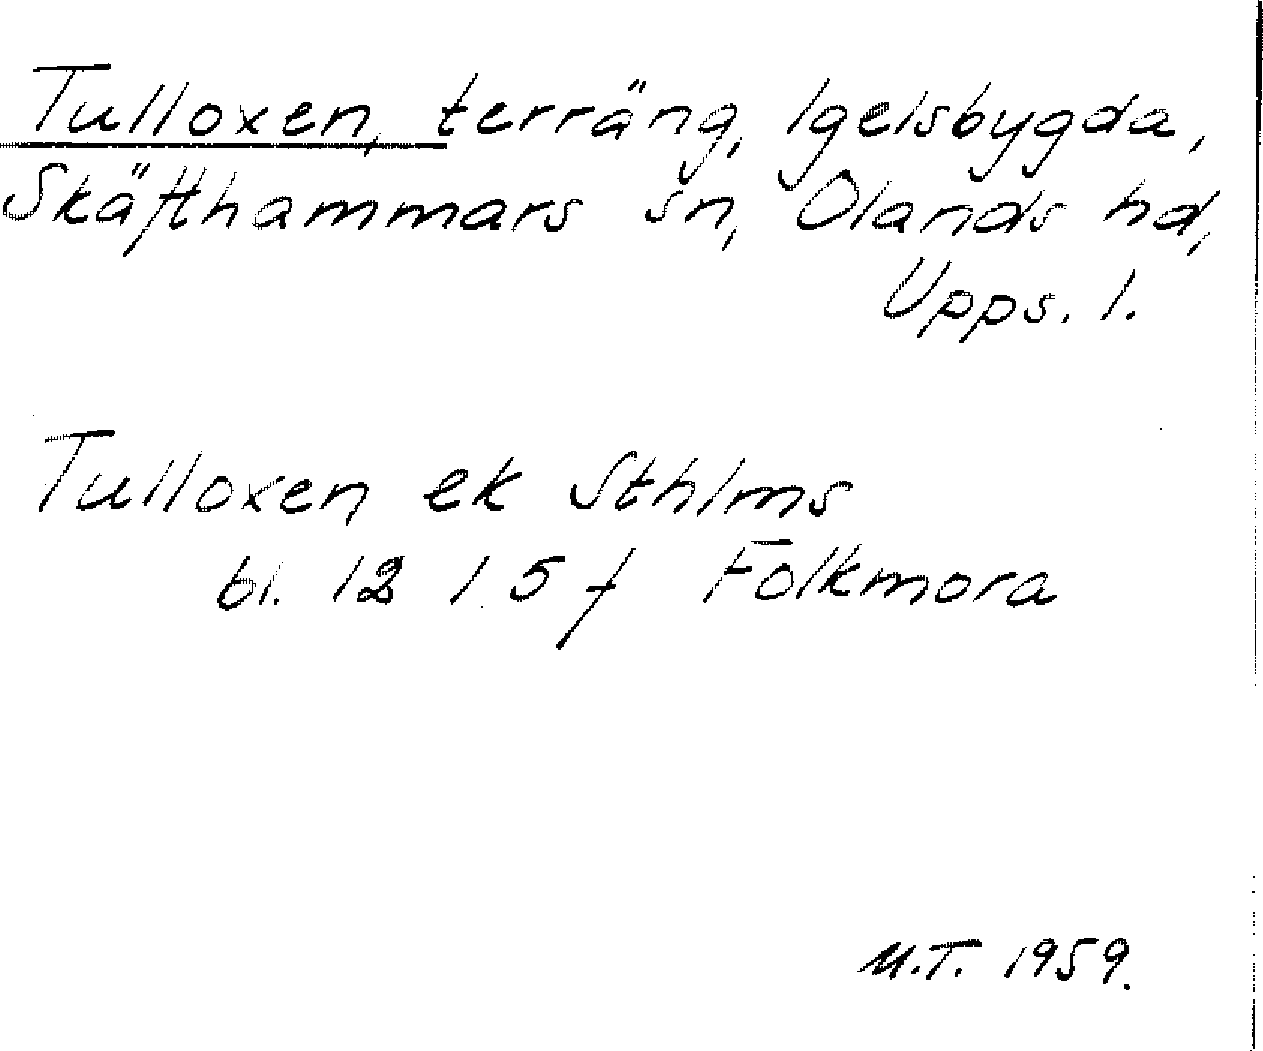 Tulloxen, terräng, Igelsbygda,
Skäfthammars sn, Olands hd,
Upps. l.
Tulloxen ek Sthlms
bl. 12 l. 5 f Folkmora
M.T. 1959.